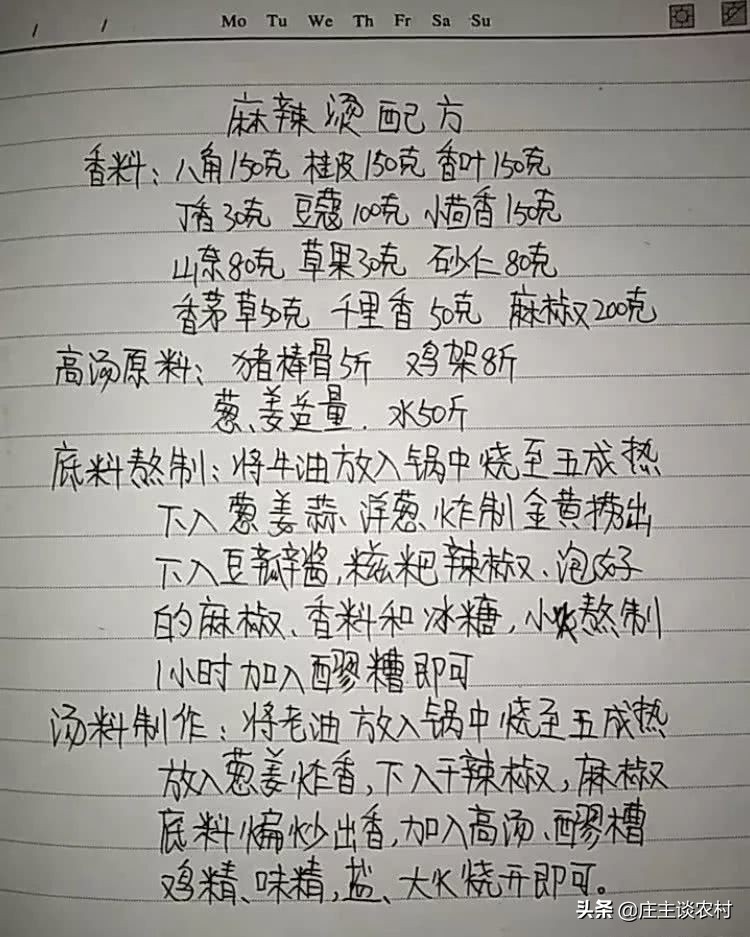 Mo Tu We Th Fr Sa Su
麻辣烫配方
香料：八角150克 桂皮150克 香叶150克
丁香30克 豆蔻100克 小茴香150克
山奈80克 草果30克 砂仁80克
香茅草50克 千里香50克 麻椒200克
高汤原料：猪棒骨5斤 鸡架8斤
葱、姜适量. 水50斤
底料熬制：将牛油放入锅中烧至五成热
下入葱姜蒜、洋葱、炸制金黄捞出
下入豆瓣酱，糍粑辣椒、泡好
的麻椒、香料和冰糖，小火熬制
1小时加入醪糟即可
汤料制作：将老油放入锅中烧至五成热
放入葱姜炸香，下入干辣椒，麻椒
底料煸炒出香，加入高汤、醪糟
鸡精、味精，盐、大火烧开即可。
头条 @庄主谈农村